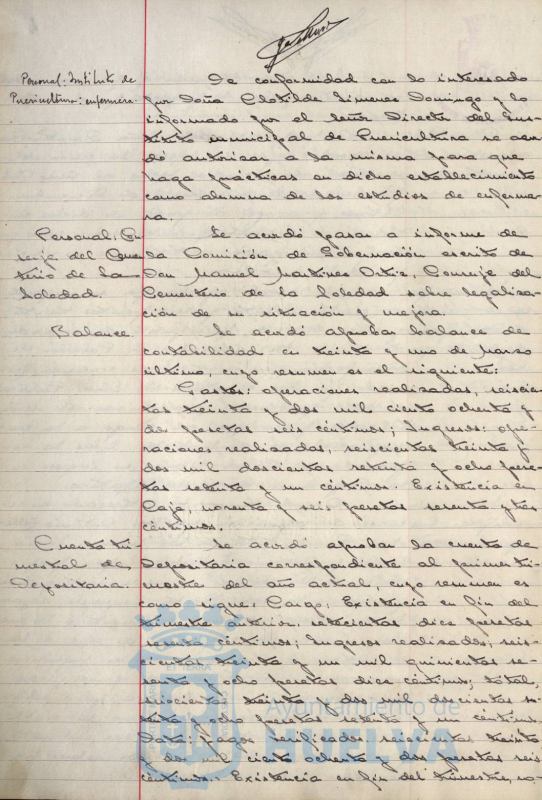 Personal: Instituto de
Puericultura: enfermera.
De conformidad con lo interesado
por Doña Clotilde Jimenez Domingo y lo
informado por el señor Director del Ins-
tituto municipal de Puericultura se acor-
dó autorizar a la misma para que
haga prácticas en dicho establecimiento
como alumna de los estudios de enferme-
ra.
Personal: Con-
serje del Cemen-
terio de la
Soledad.
Se acordó pasar a informe de
la Comisión de Gobernación escrito de
Don Manuel Martinez Ortiz, Conserje del
Cementerio de la Soledad sobre legaliza-
ción de su situación y mejora.
Balance.
Se acordó aprobar balance de
contabilidad en treinta y uno de Marzo
último, cuyo resumen es el siguiente:
Gastos: operaciones realizadas, seiscien-
tas treinta y dos mil ciento ochenta y
dos pesetas seis céntimos; Ingresos: ope-
raciones realizadas, seiscientas treinta y
dos mil doscientas setenta y ocho pese-
tas setenta y un céntimos. Existencia en
Caja, noventa y seis pesetas sesenta y tres
céntimos.
Cuenta tri-
mestral de
Depositaria.
Se acordó aprobar la cuenta de
Depositaria correspondiente al primer tri-
mestre del año actual, cuyo resumen es
como sigue: Cargo: Existencia en fin del
trimestre anterior, setecientas diez pesetas
sesenta céntimos; Ingresos realizados, seis-
cientas treinta y un mil quinientas se-
senta y ocho pesetas diez céntimos; total,
seiscientas treinta y dos mil doscientas se-
tenta y ocho pesetas setenta y un céntimos.
Data: pagos verificados seiscientas treinta
y dos mil ciento ochenta y dos pesetas seis
céntimos. Existencia en fin del trimestre, no-
Ayuntamiento de
HUELVA